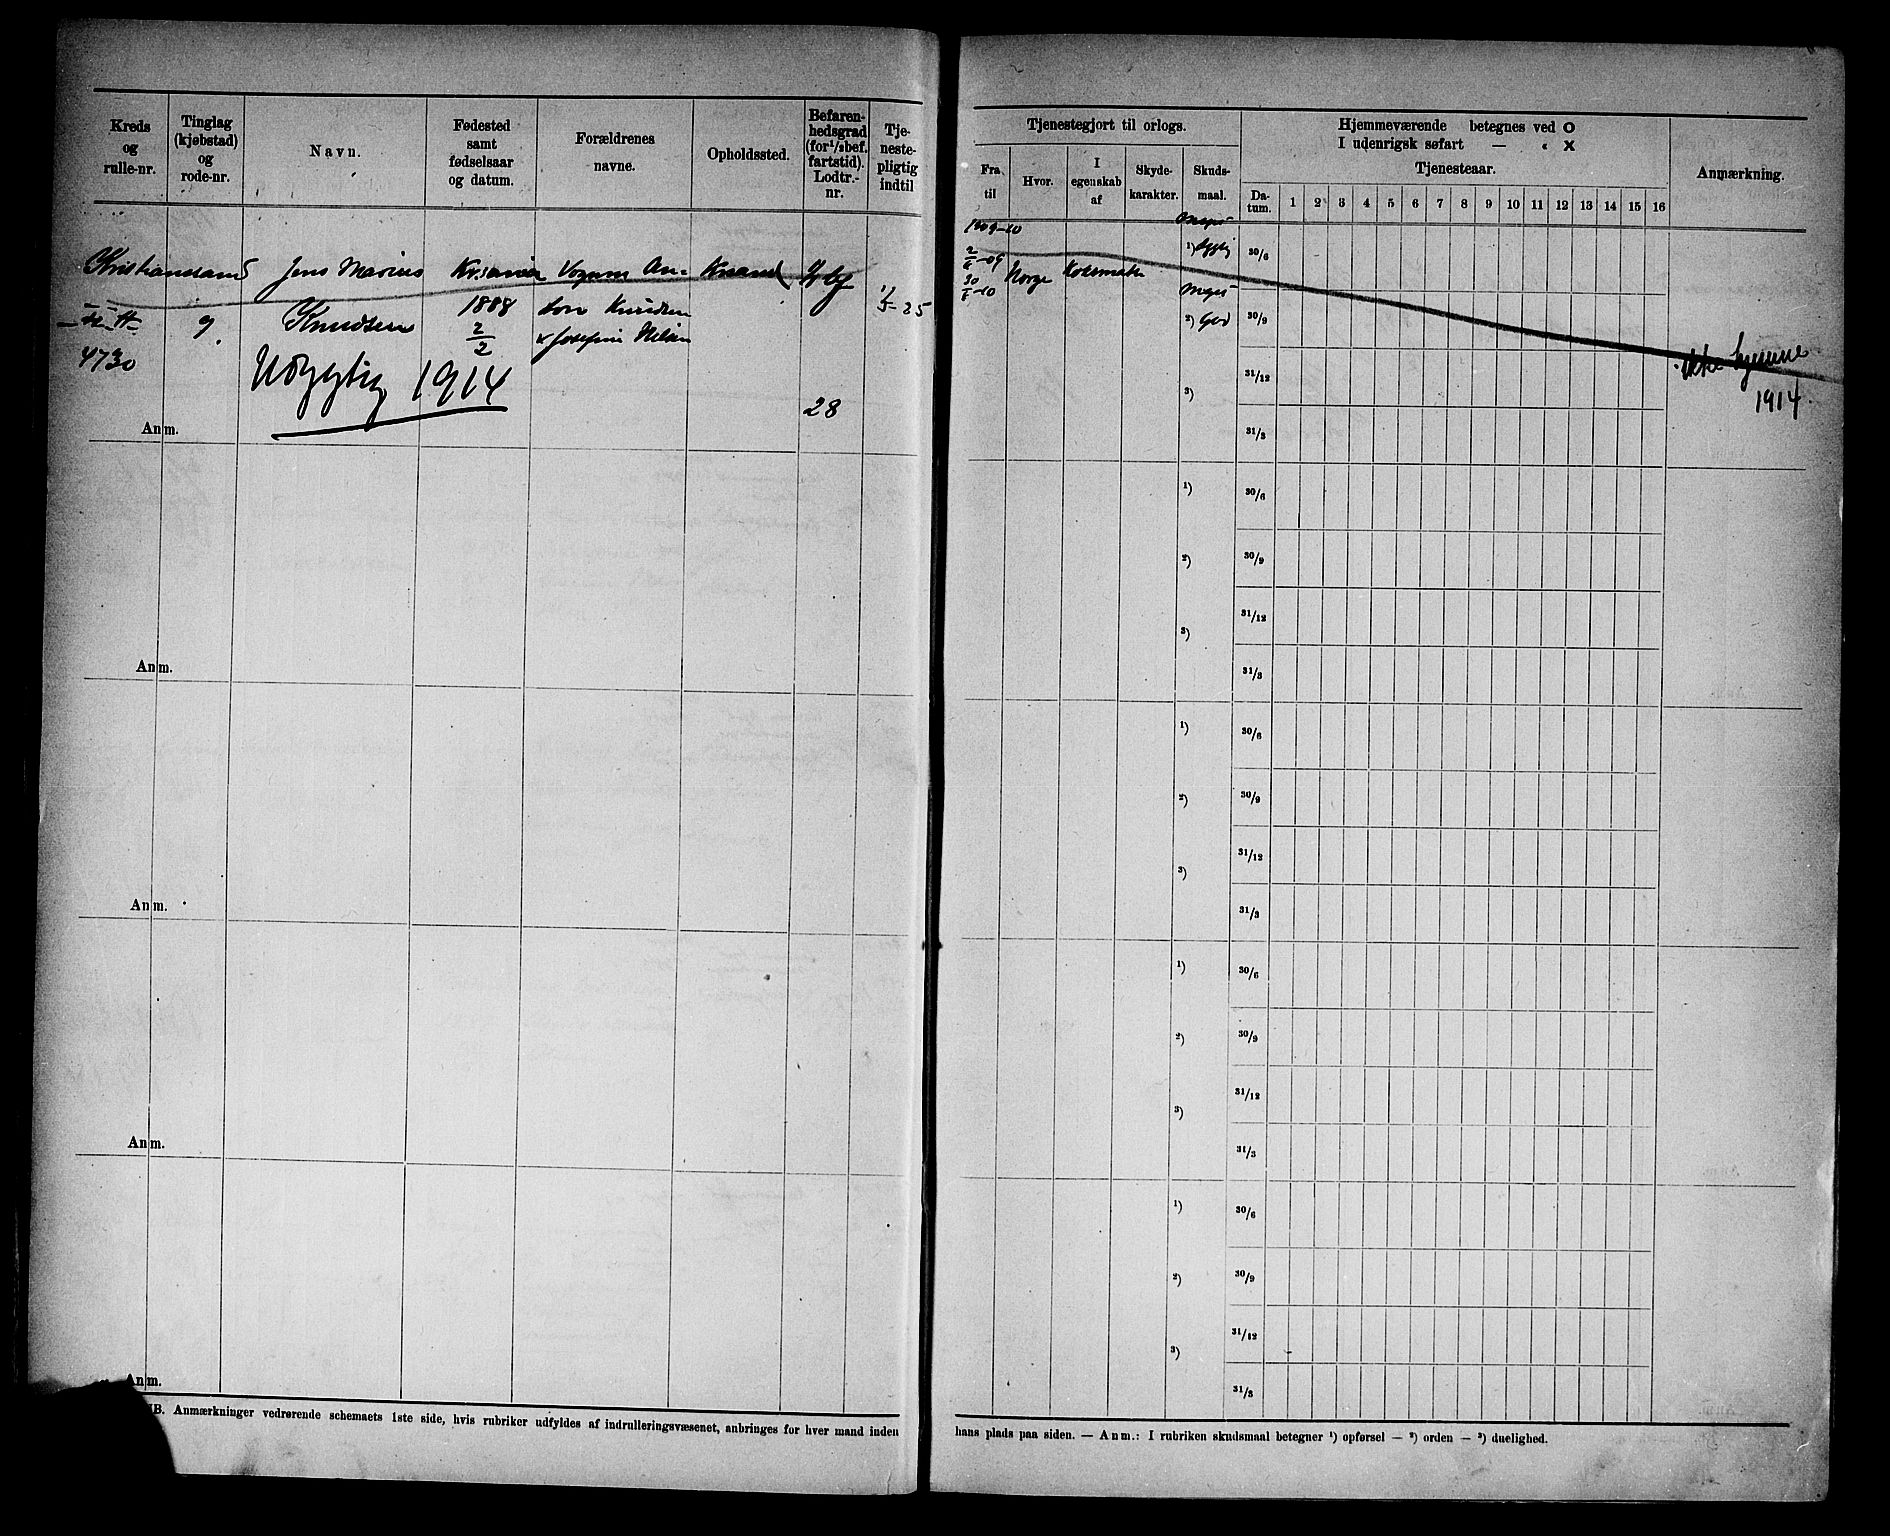 Kreds
og
rulle-nr.
Tinglag
(kjøbstad)
og
rode-nr.
Navn.
Fødested
samt
fødselsaar
og datum.
Forældrenes
navne.
Opholdssted.
Befaren-
hedsgrad
(for ¹/₂ bef.
fartstid).
Lodtr.-
nr.
Tje-
neste-
pligtig
indtil
Kristianssand
4730
9
Jens Marius
Knudsen
1888
2/2
Knudsen
Josefine
28
25
Udygtig 1914
Anm.
Anm.
Anm.
Anm.
Anm.
NB. Anmærkninger vedrørende schemaets 1ste side, hvis rubriker udfyldes af indrulleringsvæsenet, anbringes for hver mand inden
Tjenestegjort til orlogs.
Fra
til
Hvor.
I
egenskab
af
Skyde-
karakter.
Skuds-
maal.
Hjemmeværende betegnes ved O
I udenrigsk søfart — « X
Tjenesteaar.
Da-
tum.
1 2 3 4 5 6 7 8 9 10 11 12 13 14 15 16
Anmærkning.
1909-10
Norge
Meget
¹)
30/6
Meget
²) God
30/9
³)
31/12
31/3
1914
¹)
30/6
²)
30/9
³)
31/12
31/3
¹)
30/6
²)
30/9
³)
31/12
31/3
¹)
30/6
²)
30/9
³)
31/12
31/3
¹)
30/6
²)
30/9
³)
31/12
31/3
hans plads paa siden. — Anm.: I rubriken skudsmaal betegner ¹) opførsel — ²) orden — ³) duelighed.